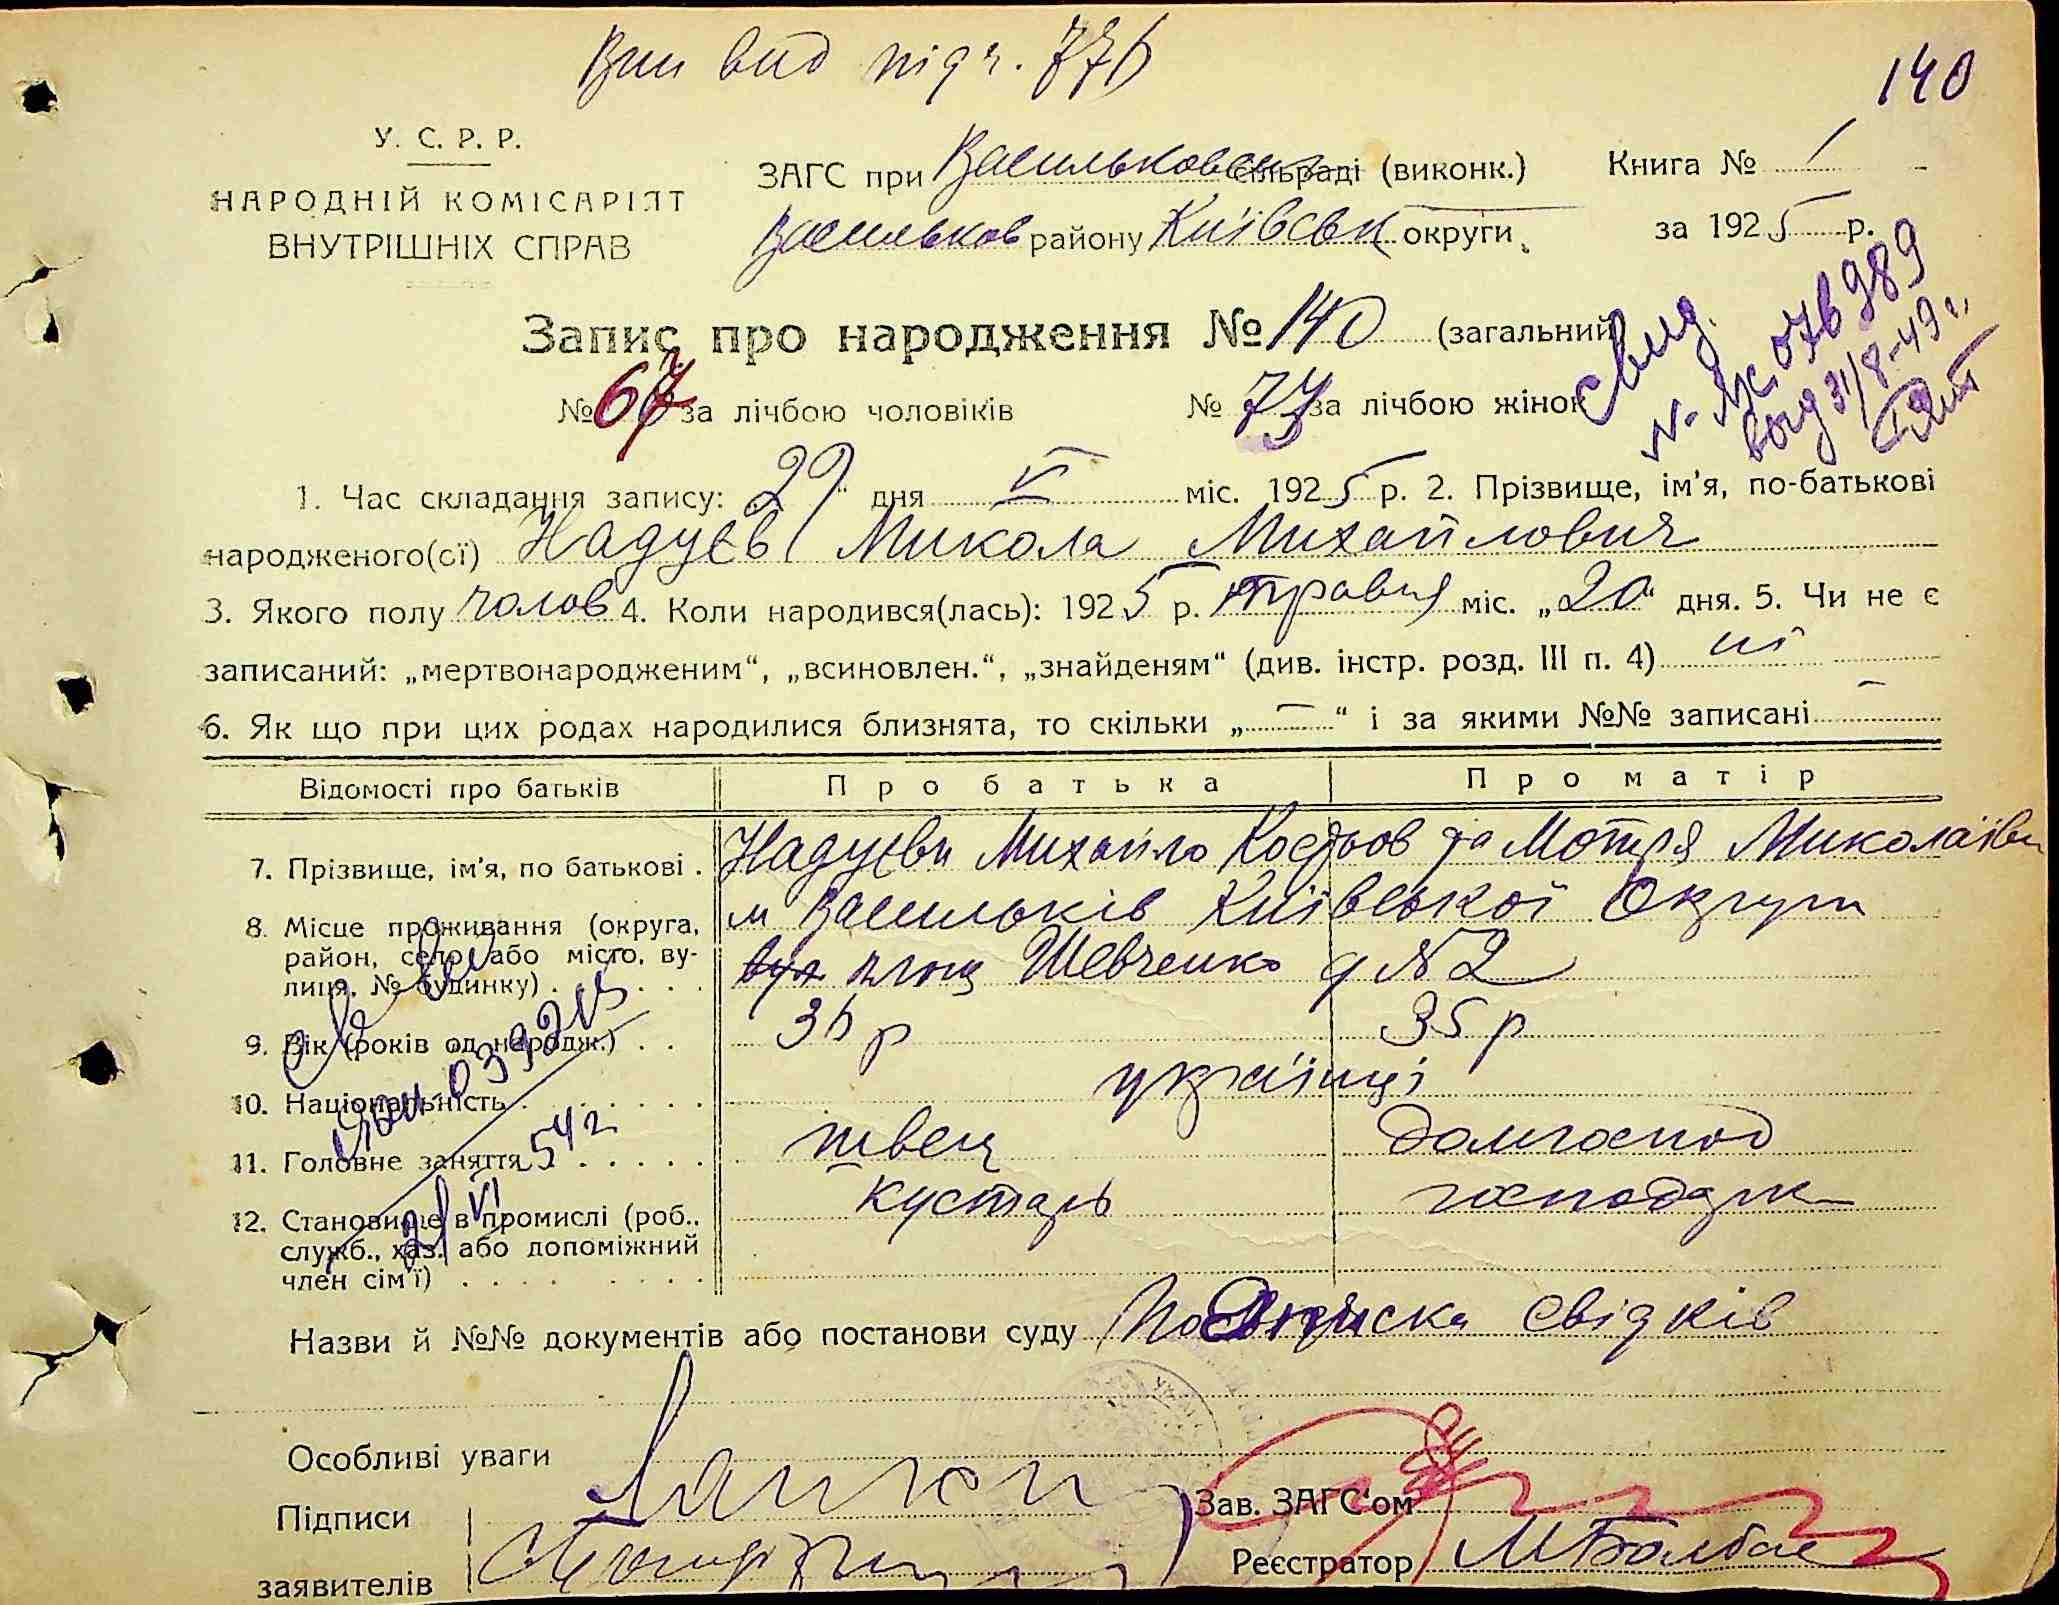 Вип вид під ч. 776
140
У. С. Р. Р.
НАРОДНІЙ КОМІСАРІЯТ
ВНУТРІШНІХ СПРАВ
ЗАГС при Васильковськ сільраді (виконк.) Книга № 1
Васильков району Київськ округи за 1925 р.
Запис про народження № 140 (загальний)
№ 67 за лічбою чоловіків № 73 за лічбою жінок
свид.
076989
выд 31/8-49 г.
1. Час складання запису: 29 " дня VI міс. 1925 р. 2. Прізвище, ім'я, по-батькові
народженого(сї) Надуєв Микола Михайлович
3. Якого полу чолов 4. Коли народився(лась): 1925 р. травня міс. „20" дня. 5. Чи не є
записаний: „мертвонародженим", „всиновлен.", „знайденям" (див. інстр. розд. III п. 4) ні
6. Як що при цих родах народилися близнята, то скільки „ — " і за якими №№ записані —
Відомості про батьків Про батька Про матір
7. Прізвище, ім'я, по батькові . Надуєви Михайло та Мотря Миколаївн
8. Місце проживання (округа, м Васильків Київської Округи
район, село або місто, ву- вул площ Шевченко д № 2
лиця, № будинку) . . . . .
9. Вік (років од народж.) . . 36 р 35 р
10. Національність . . . . . . українці
11. Головне заняття . . . . . швець домгоспод
54 г
21 VI
12. Становище в промислі (роб., кустарь господарк
служб., хаз. або допоміжний
член сім'ї) . . . . . . . .
Назви й №№ документів або постанови суду свідків
Особливі уваги
Підписи
Зав. ЗАГС'ом
заявителів
Реєстратор